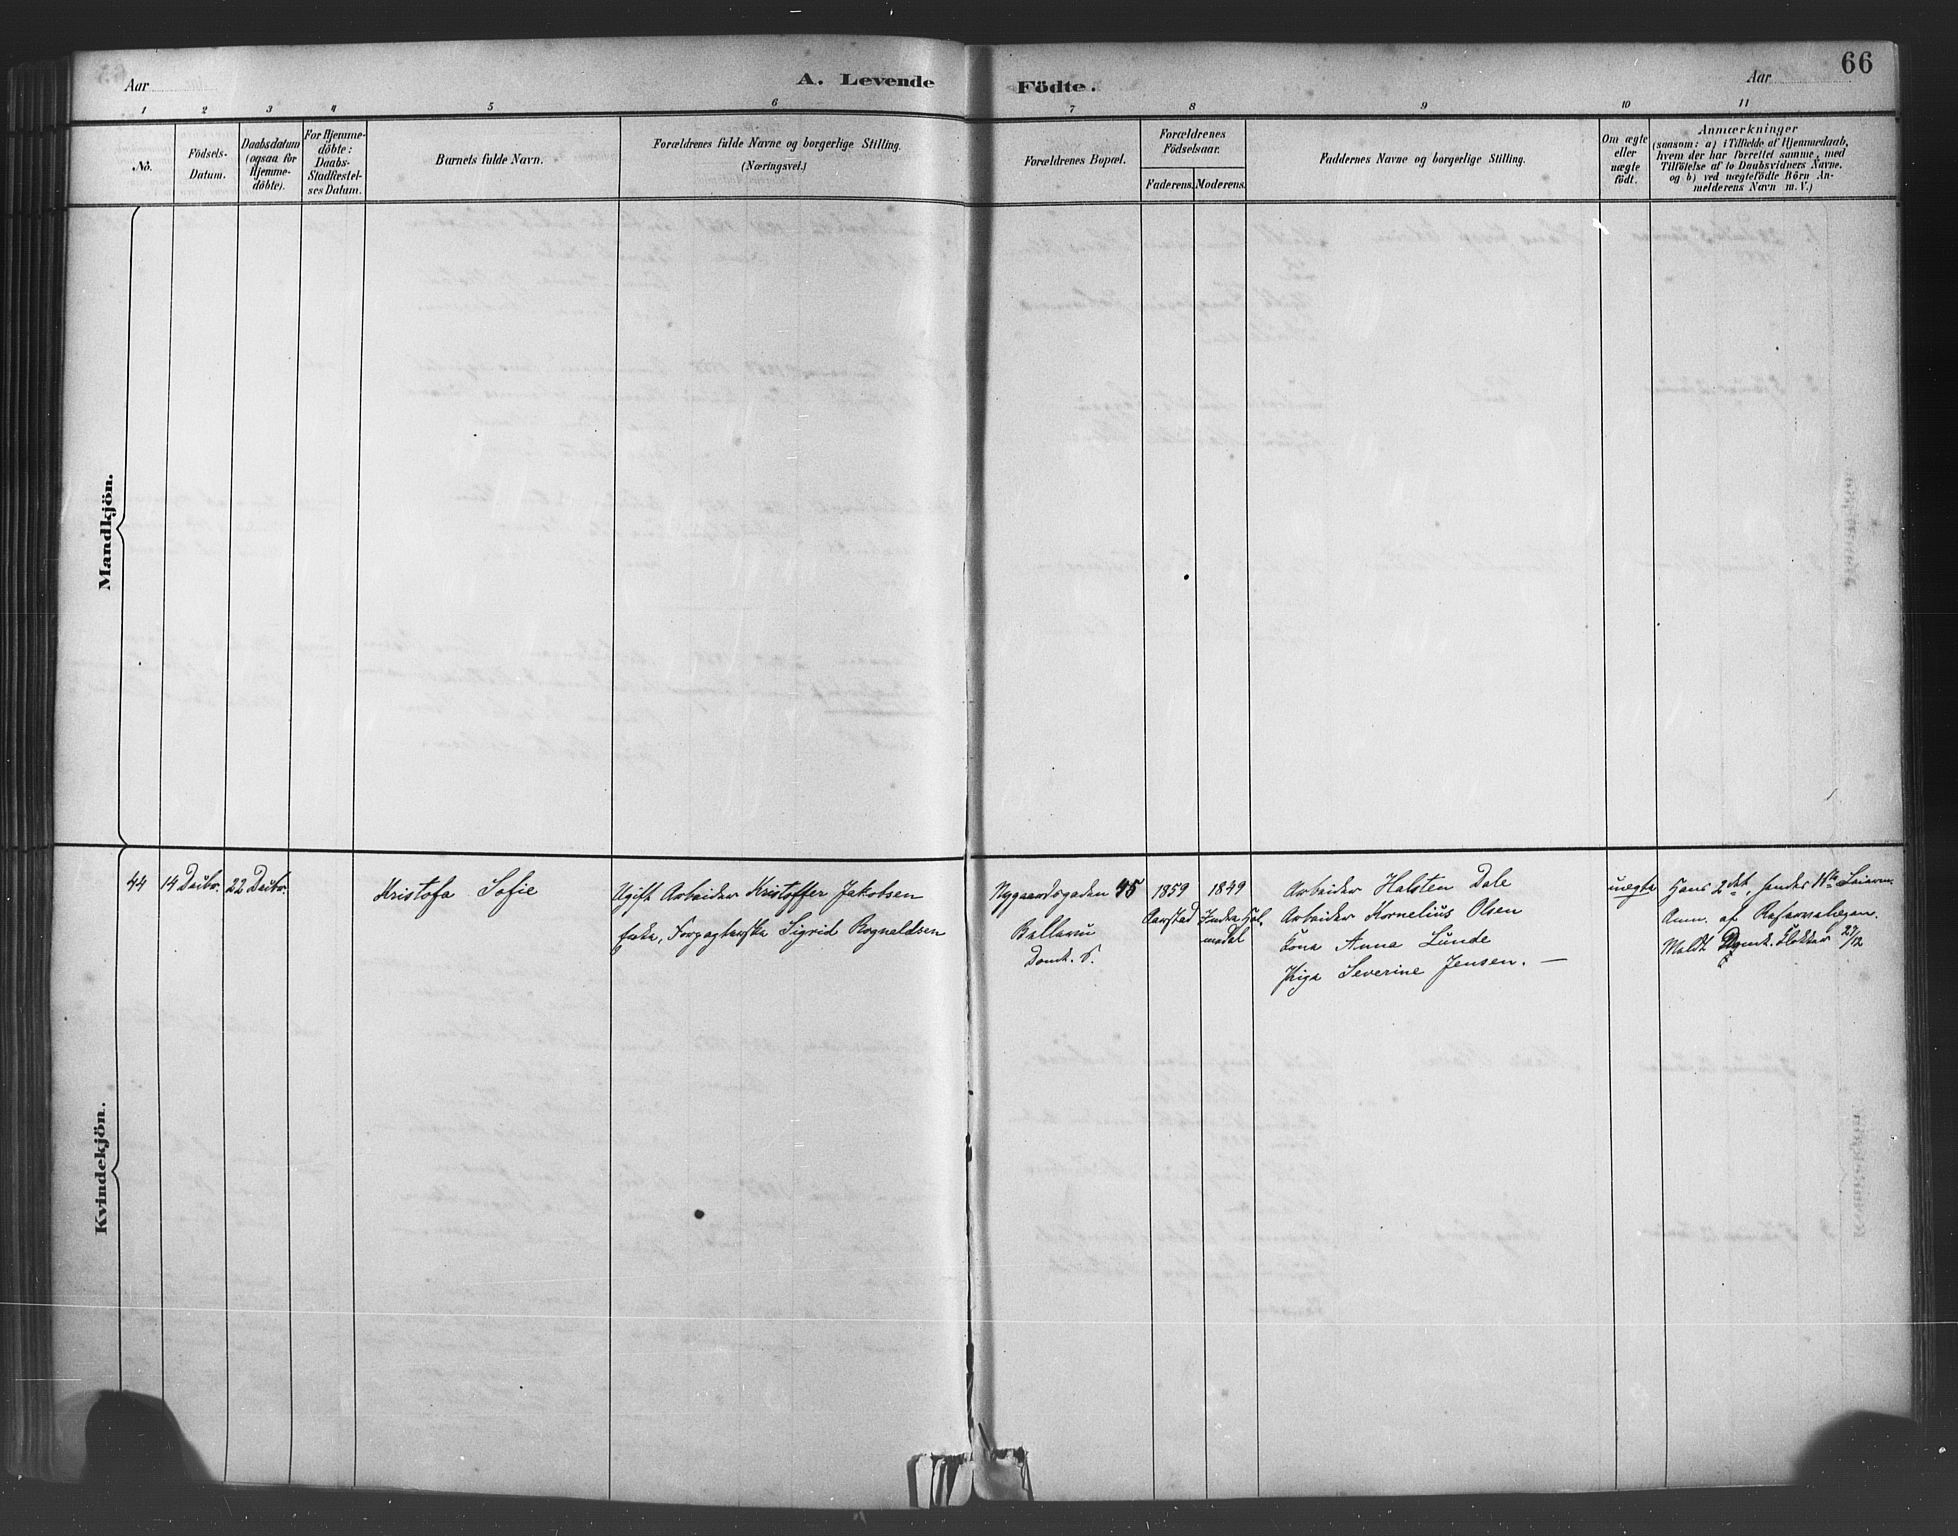 66
Aar
A. Levende Födte.
Aar
1 2 3 4 5 6 7 8 9 10 11
No.
Födsels-
Datum.
Daabsdatum
(ogsaa for
Hjemme-
döbte).
For Hjemme-
döbte:
Daabs-
Stadfæstel-
ses Datum.
Barnets fulde Navn.
Forældrenes fulde Navne og borgerlige Stilling.
(Næringsvei.)
Forældrenes Bopæl.
Forældrenes
Födselsaar.
Faderens. Moderens.
Faddernes Navne og borgerlige Stilling.
Om ægte
eller
uægte
födt.
Anmærkninger
(saasom: a) i Tilfælde af Hjemmedaab,
hvem der har forrettet samme, med
Tilföielse af to Daabsvidners Navne.
og b) ved uægtefödte Börn An-
melderens Navn m. V.)
Mandkjön.
Kvindekjön.
44
14 Decbr.
22 Decbr.
Kristofa Sofie
Ugift Arbeider Kristoffer Jakobsen
Sigrid Rognaldsen
Nygaardsgaden 45
Domk. S.
1859
Aarstad
1849
Indre Hol-
medal
Arbeider Halsten Dale
Arbeider Kornelius Olsen
Kona Anna Lunde
Piga Severine Jensen. —
uægte
Hans 2det, hendes
Anm. af
Meldt Domk. Klokker 27/12